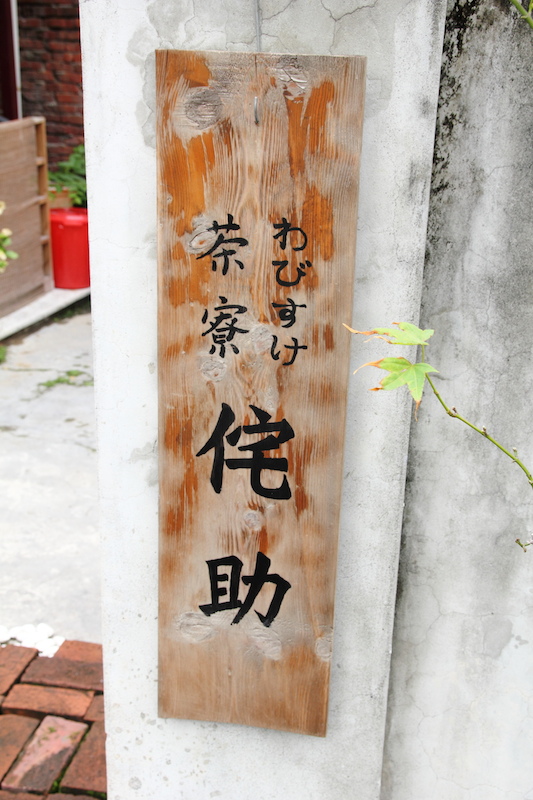 わびすけ
茶寮
侘助